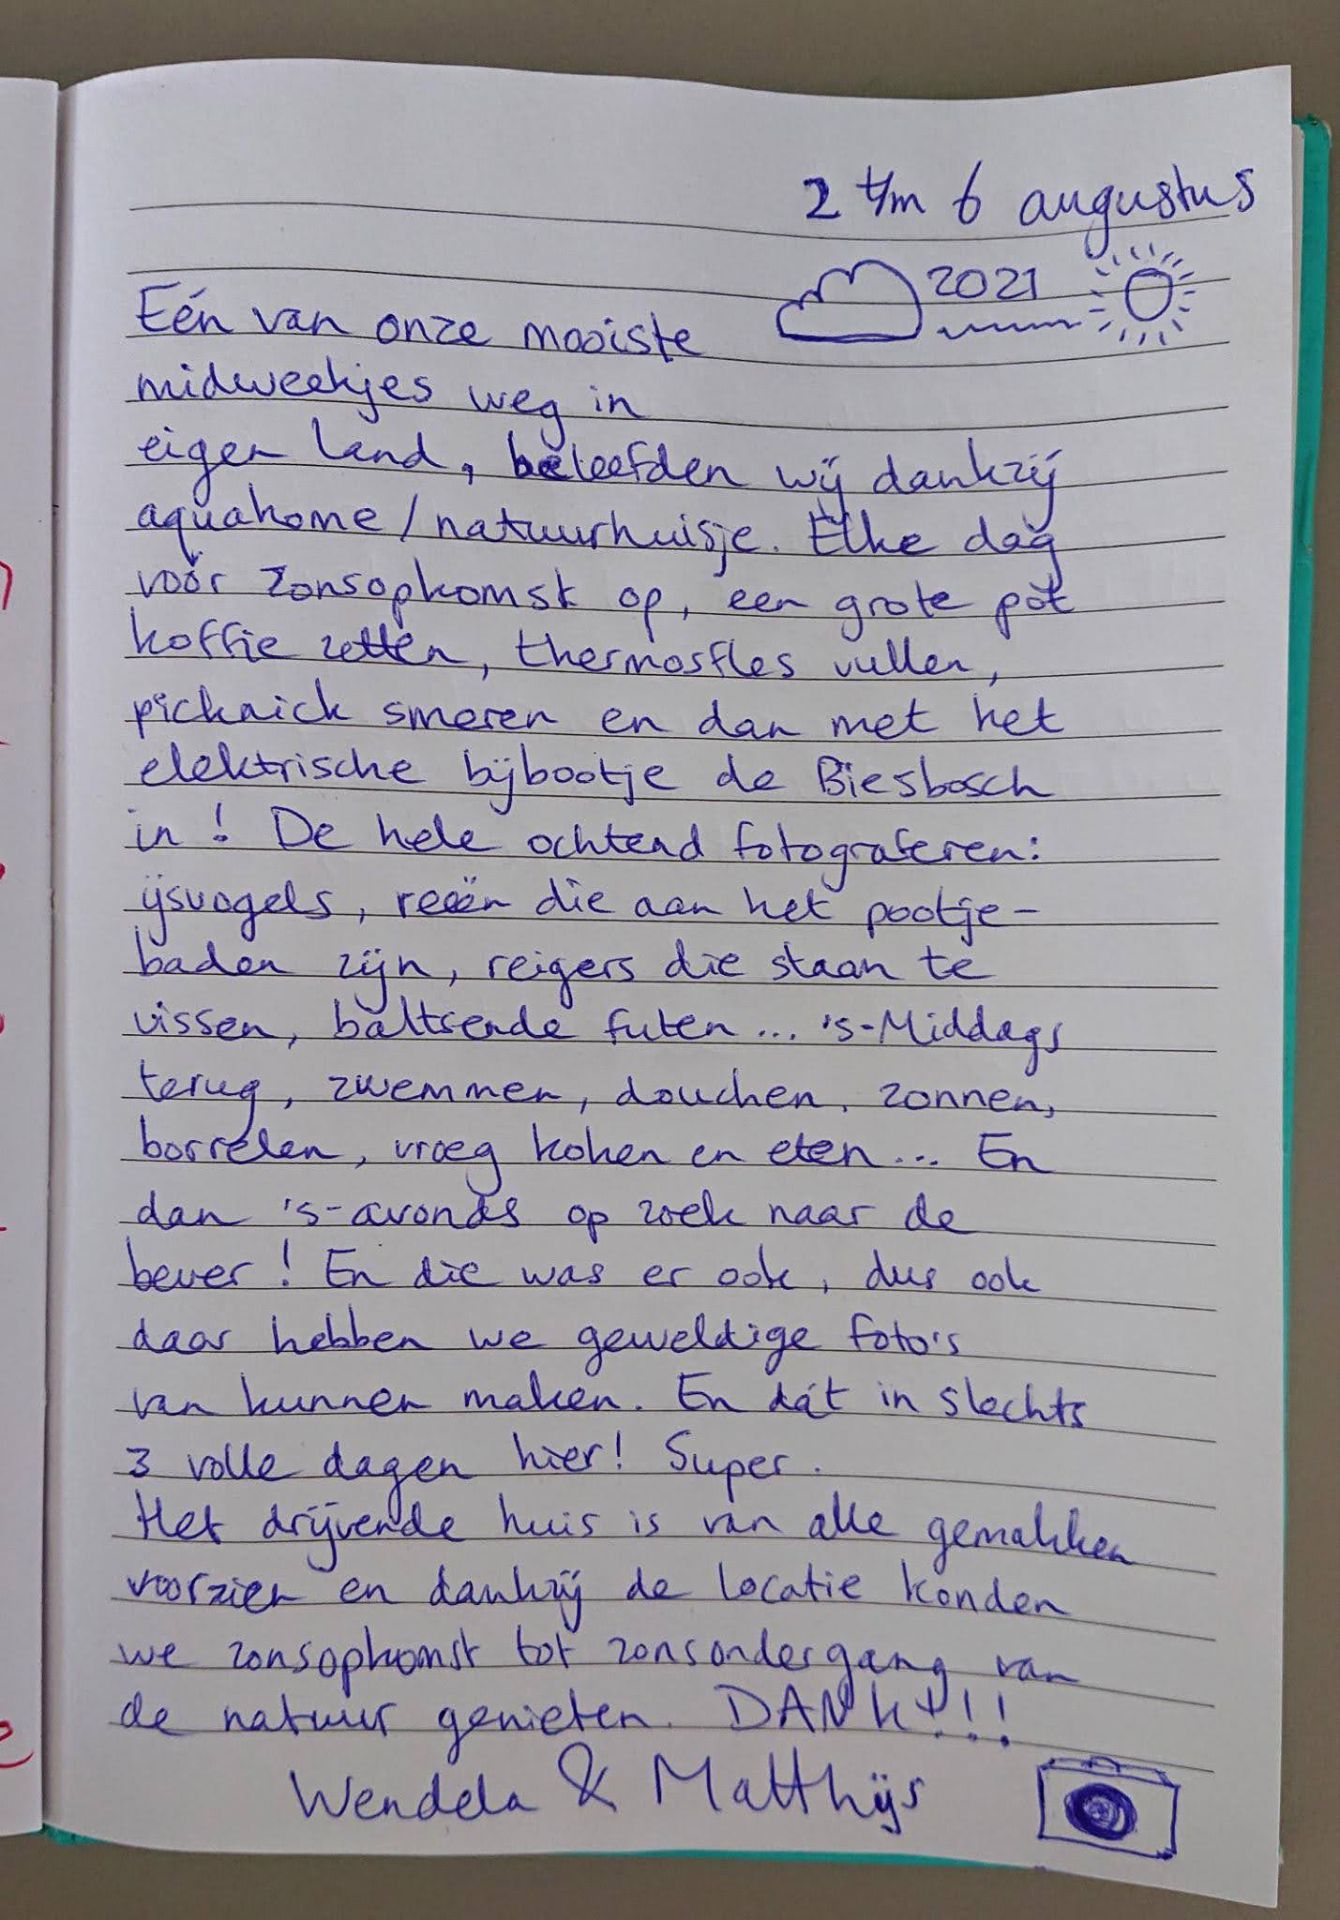 2 t/m 6 augustus
2021
Eén van onze mooiste
midweekjes weg in
eigen land, beleefden wij dankzij
aquahome/natuurhuisje. Elke dag
vóór zonsopkomst op, een grote pot
koffie zetten, thermosfles vullen,
picknick smeren en dan met het
elektrische bijbootje de Biesbosch
in! De hele ochtend fotograferen:
ijsvogels, reeën die aan het pootje-
baden zijn, reigers die staan te
vissen, baltsende futen... 's-Middags
terug, zwemmen, douchen, zonnen,
borrelen, vroeg koken en eten... En
dan 's-avonds op zoek naar de
bever! En die was er ook, dus ook
daar hebben we geweldige foto's
van kunnen maken. En dát in slechts
3 volle dagen hier! Super.
Het drijvende huis is van alle gemakken
voorzien en dankzij de locatie konden
we zonsopkomst tot zonsondergang van
de natuur genieten. DANK!!!
Wendela & Matthijs